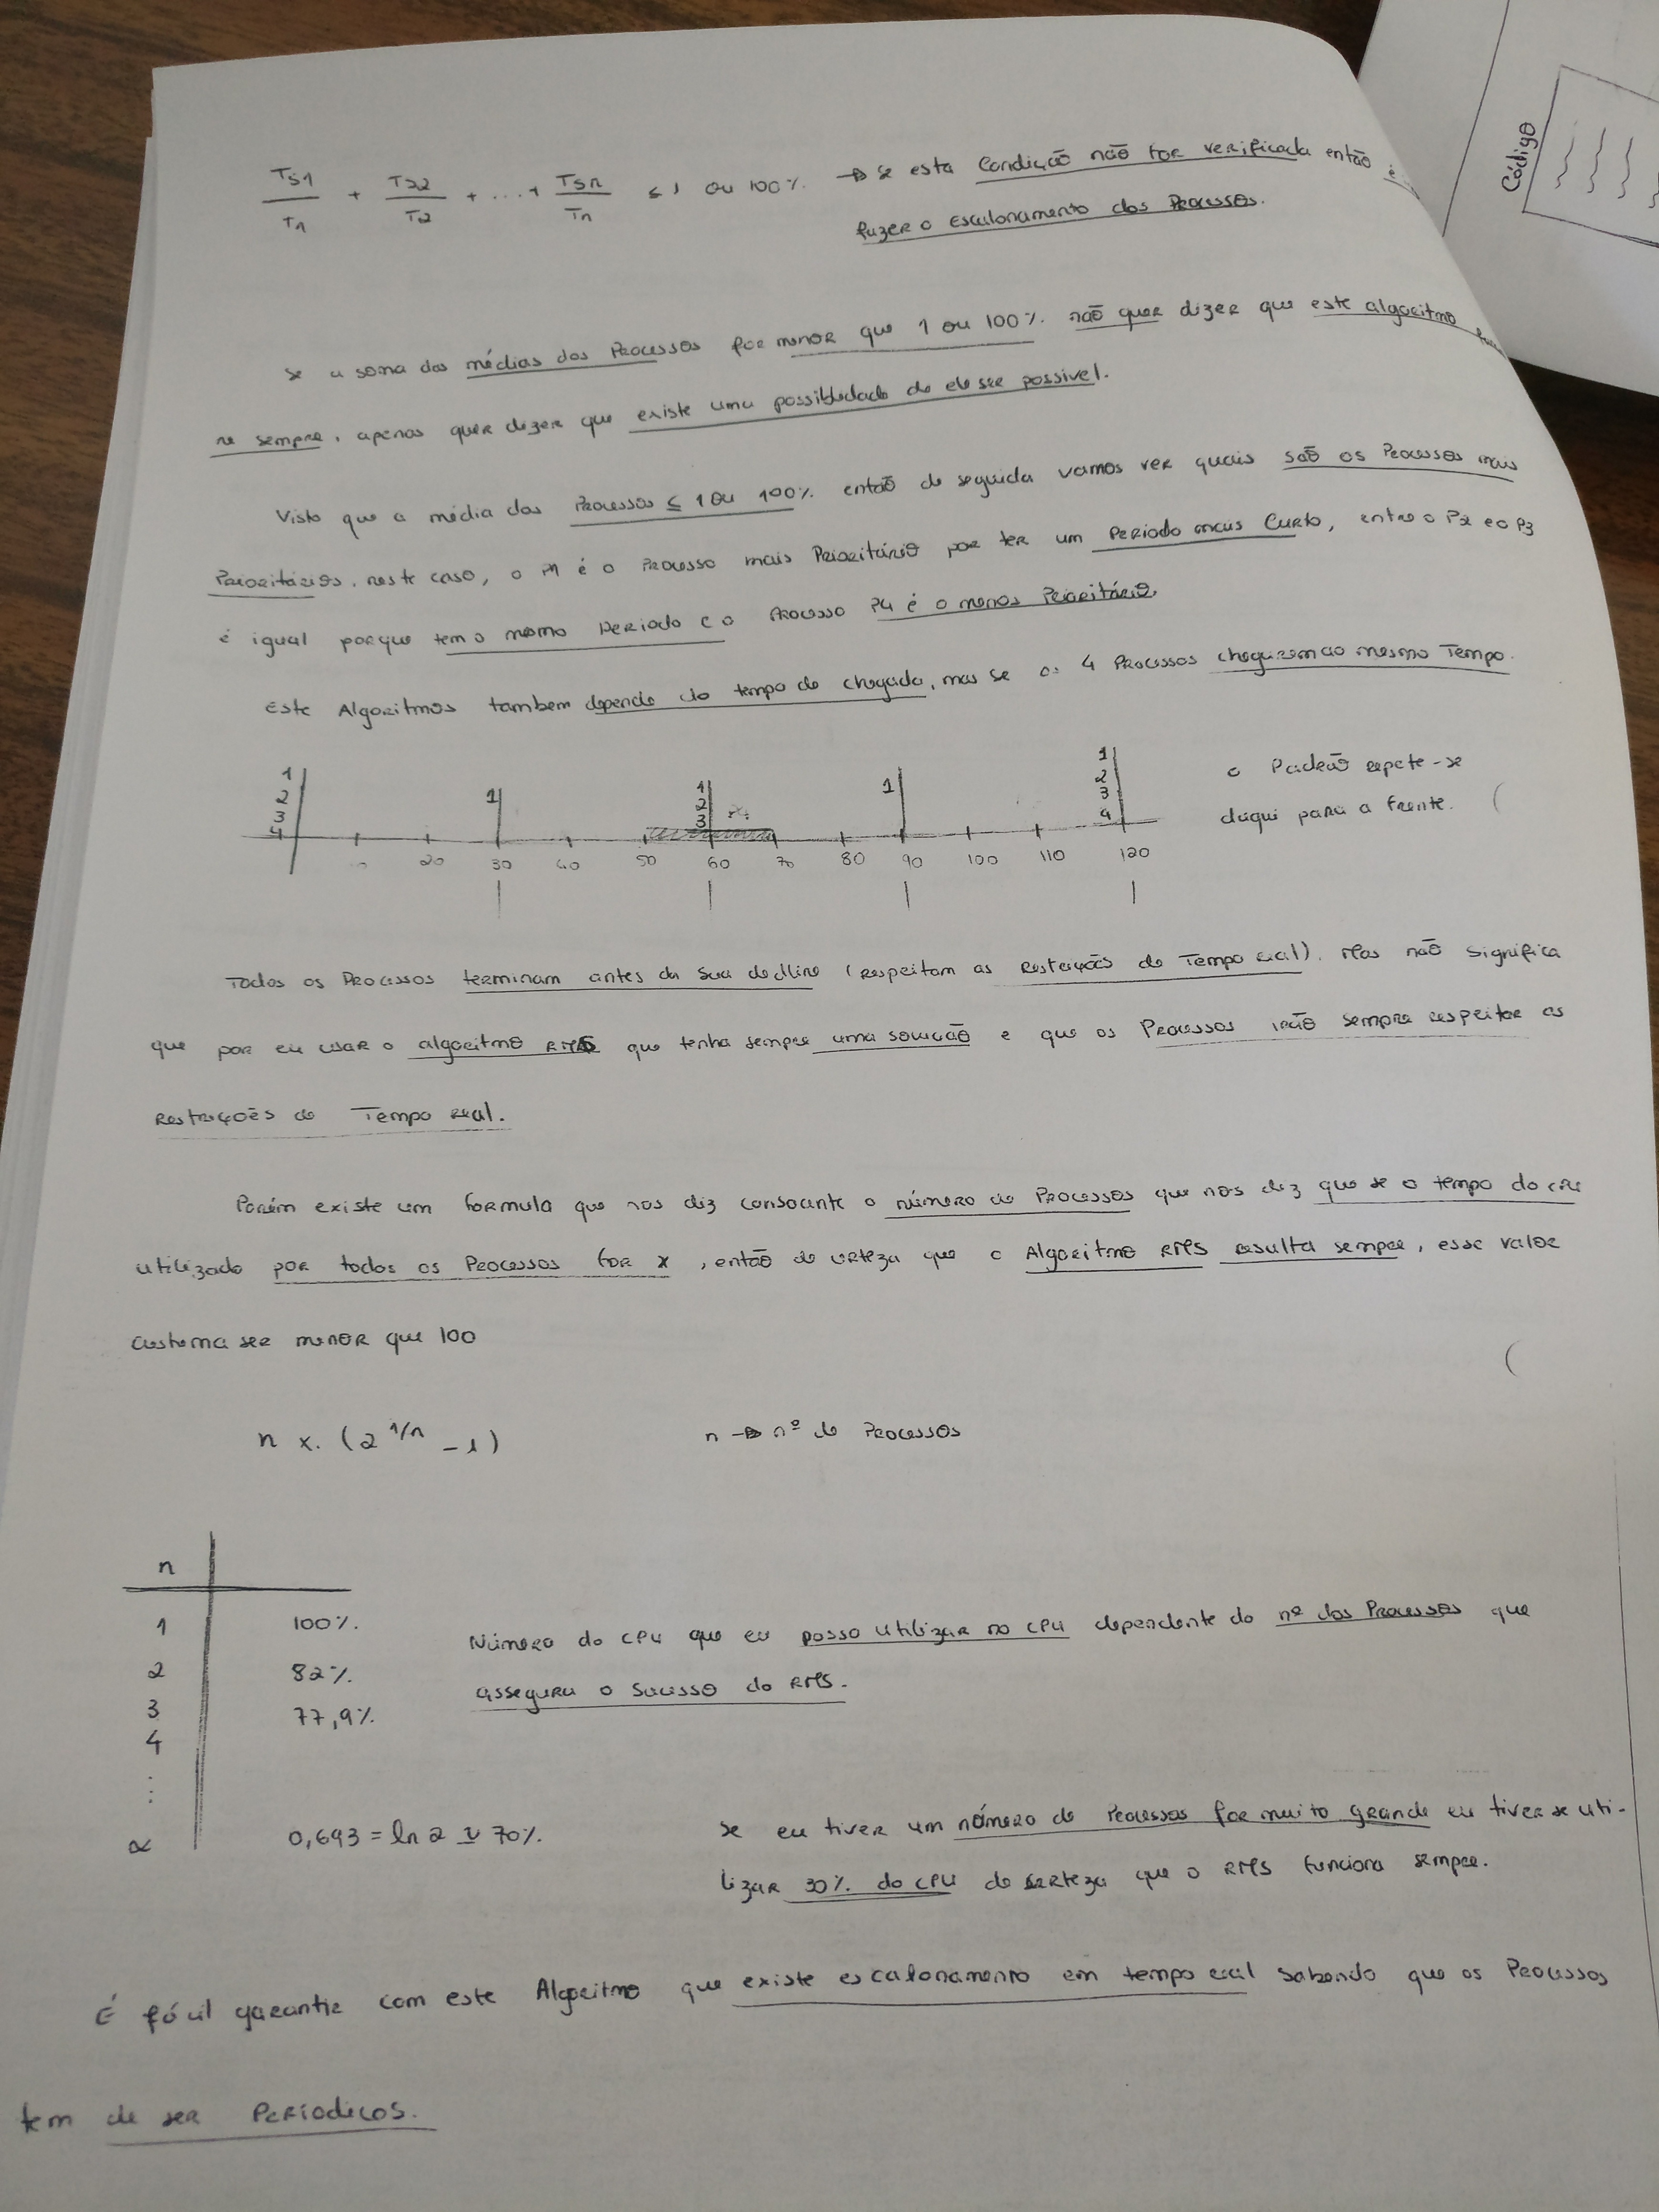 Ts1/T1 + Ts2/T2 + ... + Tsn/Tn ≤ 1 ou 100%. → se esta condição não for verificada então é
fazer o escalonamento dos Processos.
Código
Se a soma das médias dos Processos for menor que 1 ou 100%. não quer dizer que este algoritmo
ne sempre, apenas quer dizer que existe uma possiblidade de ele ser possivel.
Visto que a média dos Processos ≤ 1 ou 100% então de seguida vamos ver quais são os Processos mais
Prioritários. neste caso, o P1 é o Processo mais Prioritário por ter um Periodo mais Curto, entre o P2 e o P3
é igual porque tem o mesmo Periodo e o Processo P4 é o menos Prioritário.
Este Algoritmos tambem depende do tempo de chegada, mas se os 4 Processos chegarem ao mesmo Tempo.
1 1 1 1 1
2 2 2
3 3 3
4 4
o Padrão repete-se
daqui para a frente.
10 20 30 40 50 60 70 80 90 100 110 120
Todos os Processos terminam antes da sua dedline (respeitam as Restrições de Tempo real). Mas não significa
que por eu usar o algoritmo RMS que tenha sempre uma solução e que os Processos irão sempre respeitar as
Restrições de Tempo real.
Porém existe um formula que nos diz consoante o número de Processos que nos diz que se o tempo do CPU
utilizado por todos os Processos for x, então de certeza que o Algoritmo RMS resulta sempre, esse valor
custuma ser menor que 100
n x. (2^1/n - 1) n → nº de Processos
n
1 100%.
2 82%.
3 77,9%.
4
⋮
∝ 0,693 = ln 2 ≃ 70%.
Número do CPU que eu posso utilizar no CPU dependente do nº dos Processos que
assegura o sucesso do RMS.
Se eu tiver um número de Processos for muito grande eu tiver se uti-
lizar 30%. do CPU de certeza que o RMS funciona sempre.
É fácil garantir com este Algoritmo que existe escalonamento em tempo real sabendo que os Processos
tem de ser Periodicos.